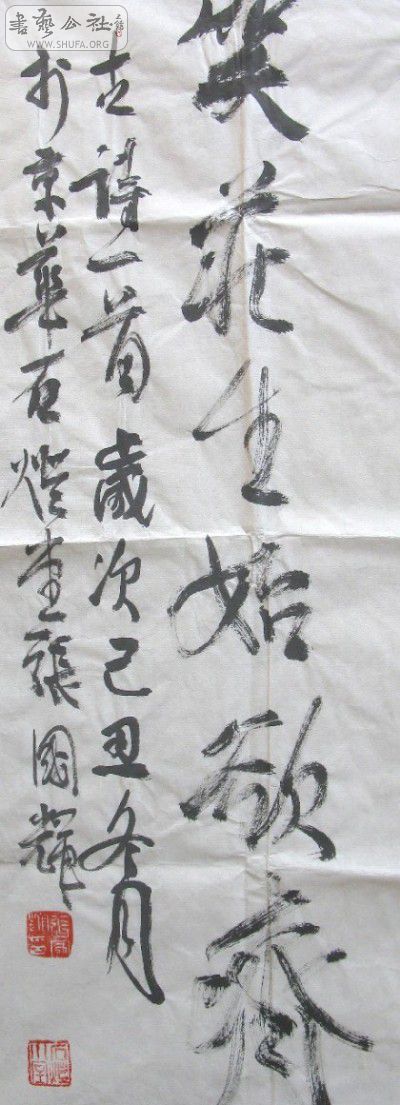 書藝公社
WWW.SHUFA.ORG
笑莊生始欲齊
古詩一首歲次己丑冬月
於京華石燈堂張國輝